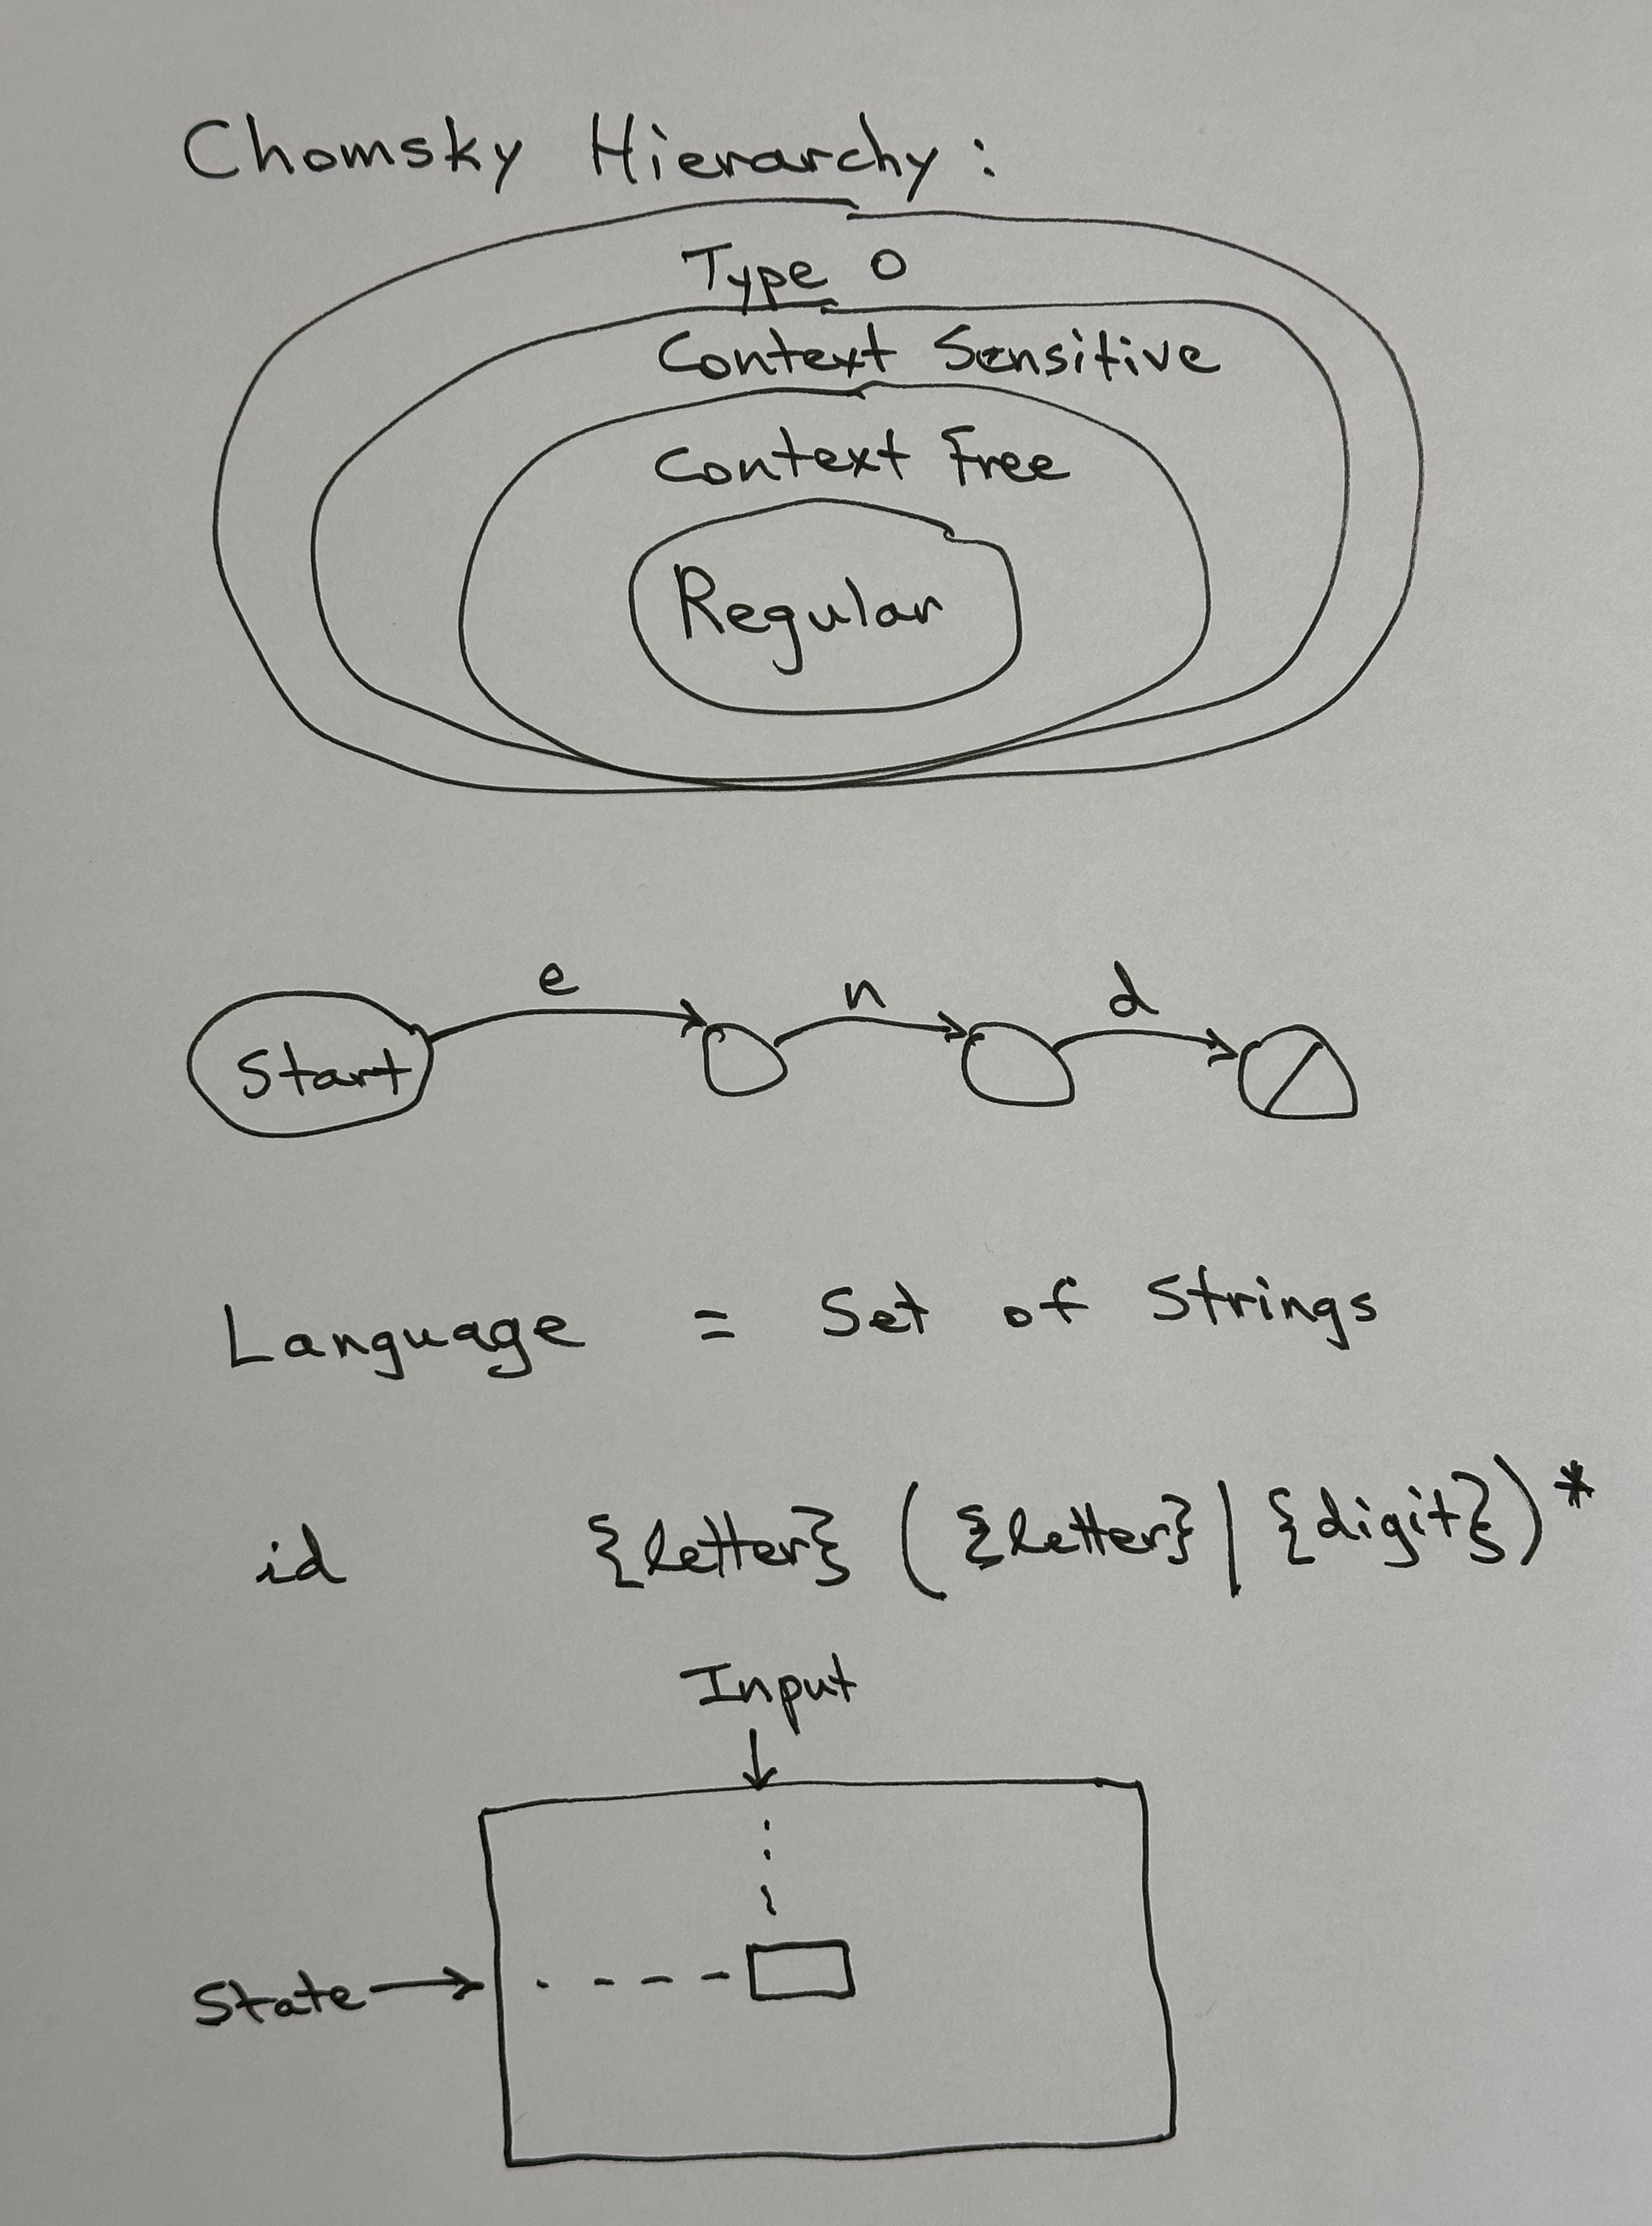 Chomsky Hierarchy:
Type 0
Context Sensitive
Context Free
Regular
e n d
Start
Language = Set of Strings
id {letter} ({letter}|{digit})*
Input
State